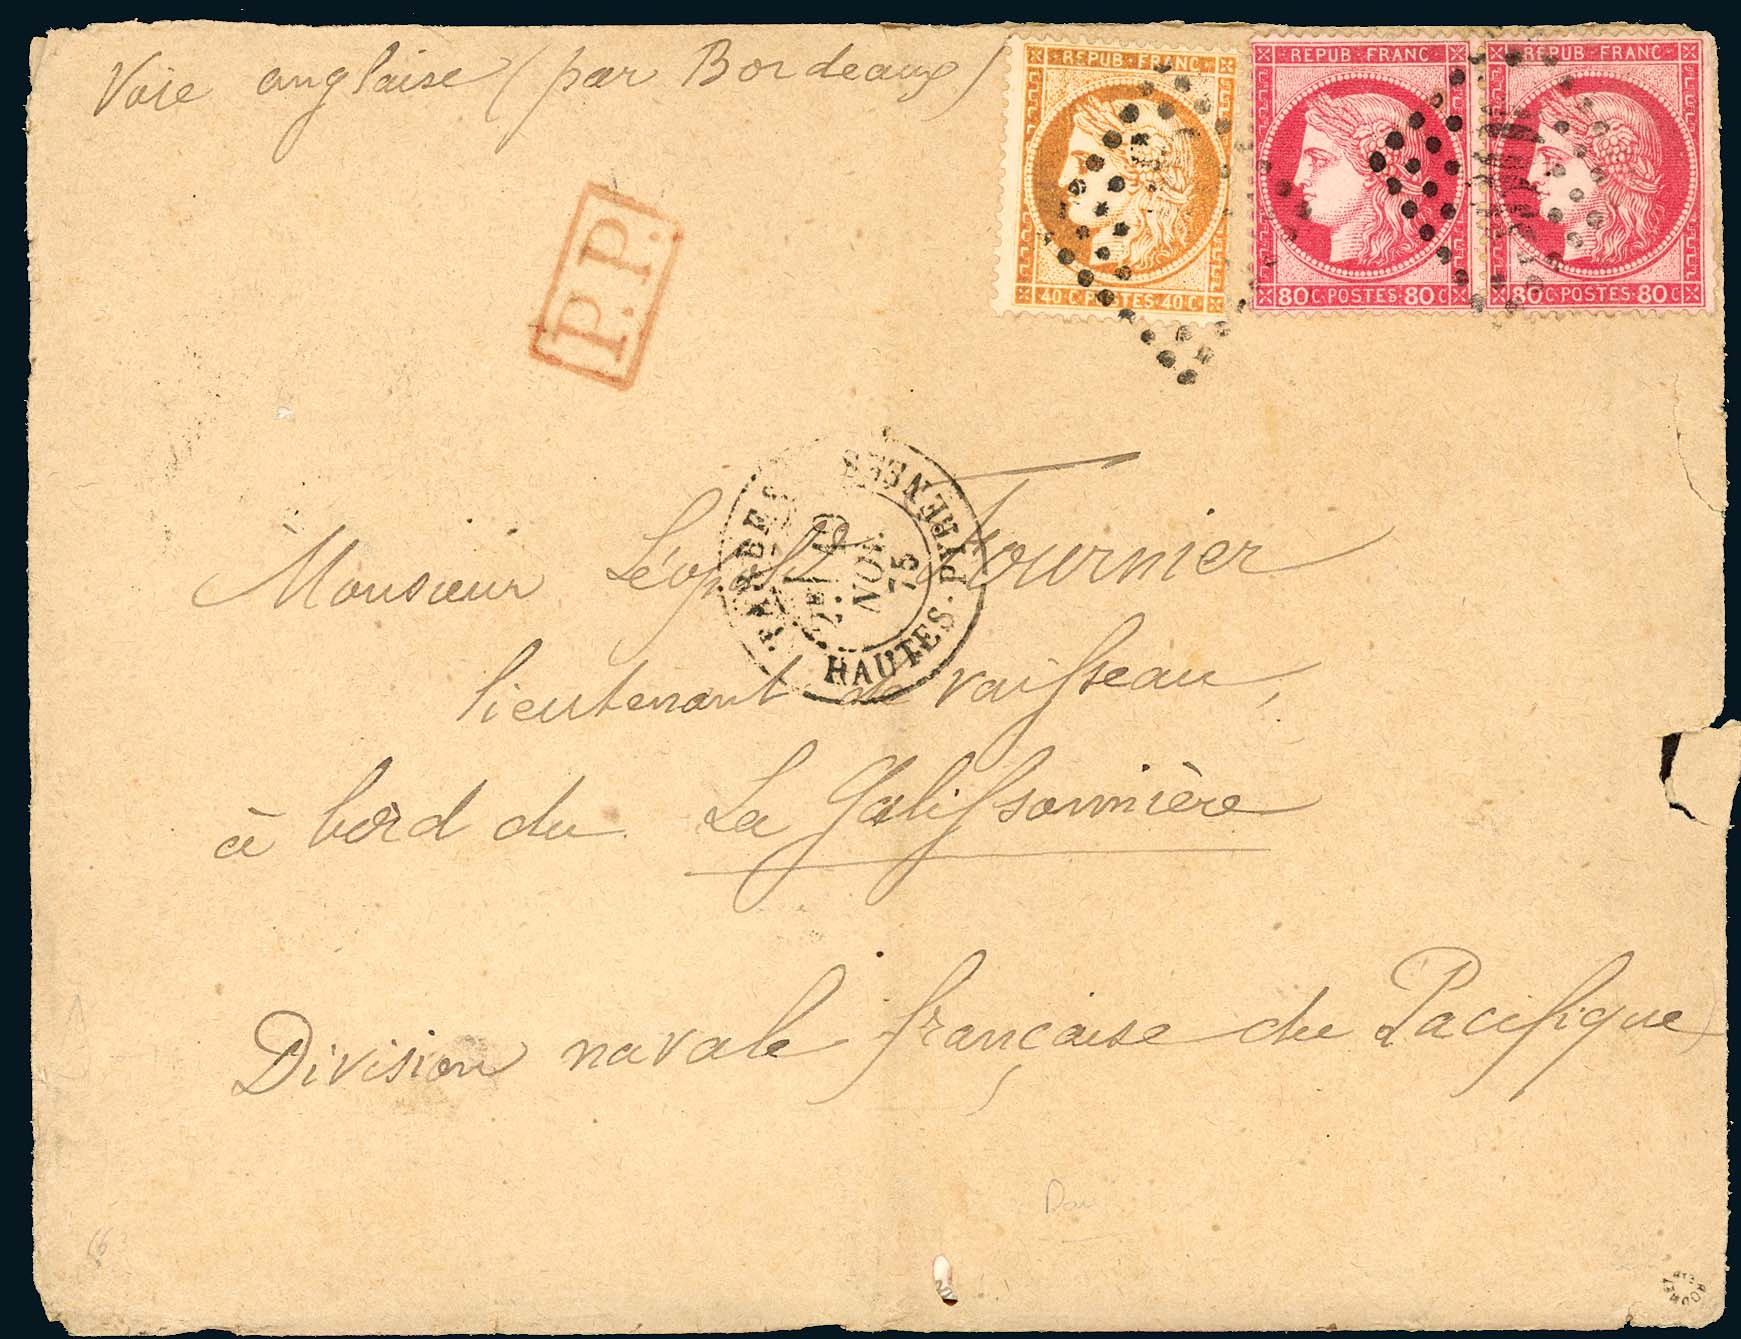 Voie anglaise (par Bordeaux)
REPUB·FRANC
40 C·POSTES·40 C
REPUB·FRANC
80 C·POSTES·80 C
REPUB·FRANC
80 C·POSTES·80 C
P.P.
TARBES
NOV.
75
HAUTES-PYRÉNÉES
Monsieur Léopold Fournier
lieutenant de vaisseau,
à bord du La Galissonnière
Division navale française du Pacifique